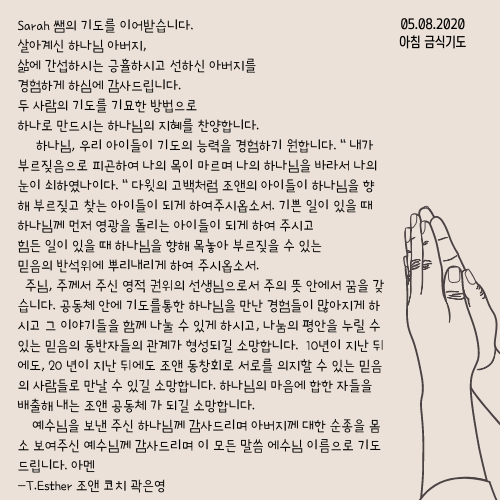 Sarah 쌤의 기도를 이어받습니다.
05.08.2020
아침 금식기도
살아계신 하나님 아버지,
삶에 간섭하시는 긍휼하시고 선하신 아버지를
경험하게 하심에 감사드립니다.
두 사람의 기도를 기묘한 방법으로
하나로 만드시는 하나님의 지혜를 찬양합니다.
하나님, 우리 아이들이 기도의 능력을 경험하기 원합니다. “ 내가
부르짖음으로 피곤하여 나의 목이 마르며 나의 하나님을 바라서 나의
눈이 쇠하였나이다. “ 다윗의 고백처럼 조앤의 아이들이 하나님을 향
해 부르짖고 찾는 아이들이 되게 하여주시옵소서. 기쁜 일이 있을 때
하나님께 먼저 영광을 돌리는 아이들이 되게 하여 주시고
힘든 일이 있을 때 하나님을 향해 목놓아 부르짖을 수 있는
믿음의 반석위에 뿌리내리게 하여 주시옵소서.
주님, 주께서 주신 영적 권위의 선생님으로서 주의 뜻 안에서 꿈을 갖
습니다. 공동체 안에 기도를통한 하나님을 만난 경험들이 많아지게 하
시고 그 이야기들을 함께 나눌 수 있게 하시고, 나눔의 평안을 누릴 수
있는 믿음의 동반자들의 관계가 형성되길 소망합니다. 10년이 지난 뒤
에도, 20 년이 지난 뒤에도 조앤 동창회로 서로를 의지할 수 있는 믿음
의 사람들로 만날 수 있길 소망합니다. 하나님의 마음에 합한 자들을
배출해 내는 조앤 공동체 가 되길 소망합니다.
예수님을 보낸 주신 하나님께 감사드리며 아버지께 대한 순종을 몸
소 보여주신 예수님께 감사드리며 이 모든 말씀 예수님 이름으로 기도
드립니다. 아멘
–T.Esther 조앤 코치 곽은영